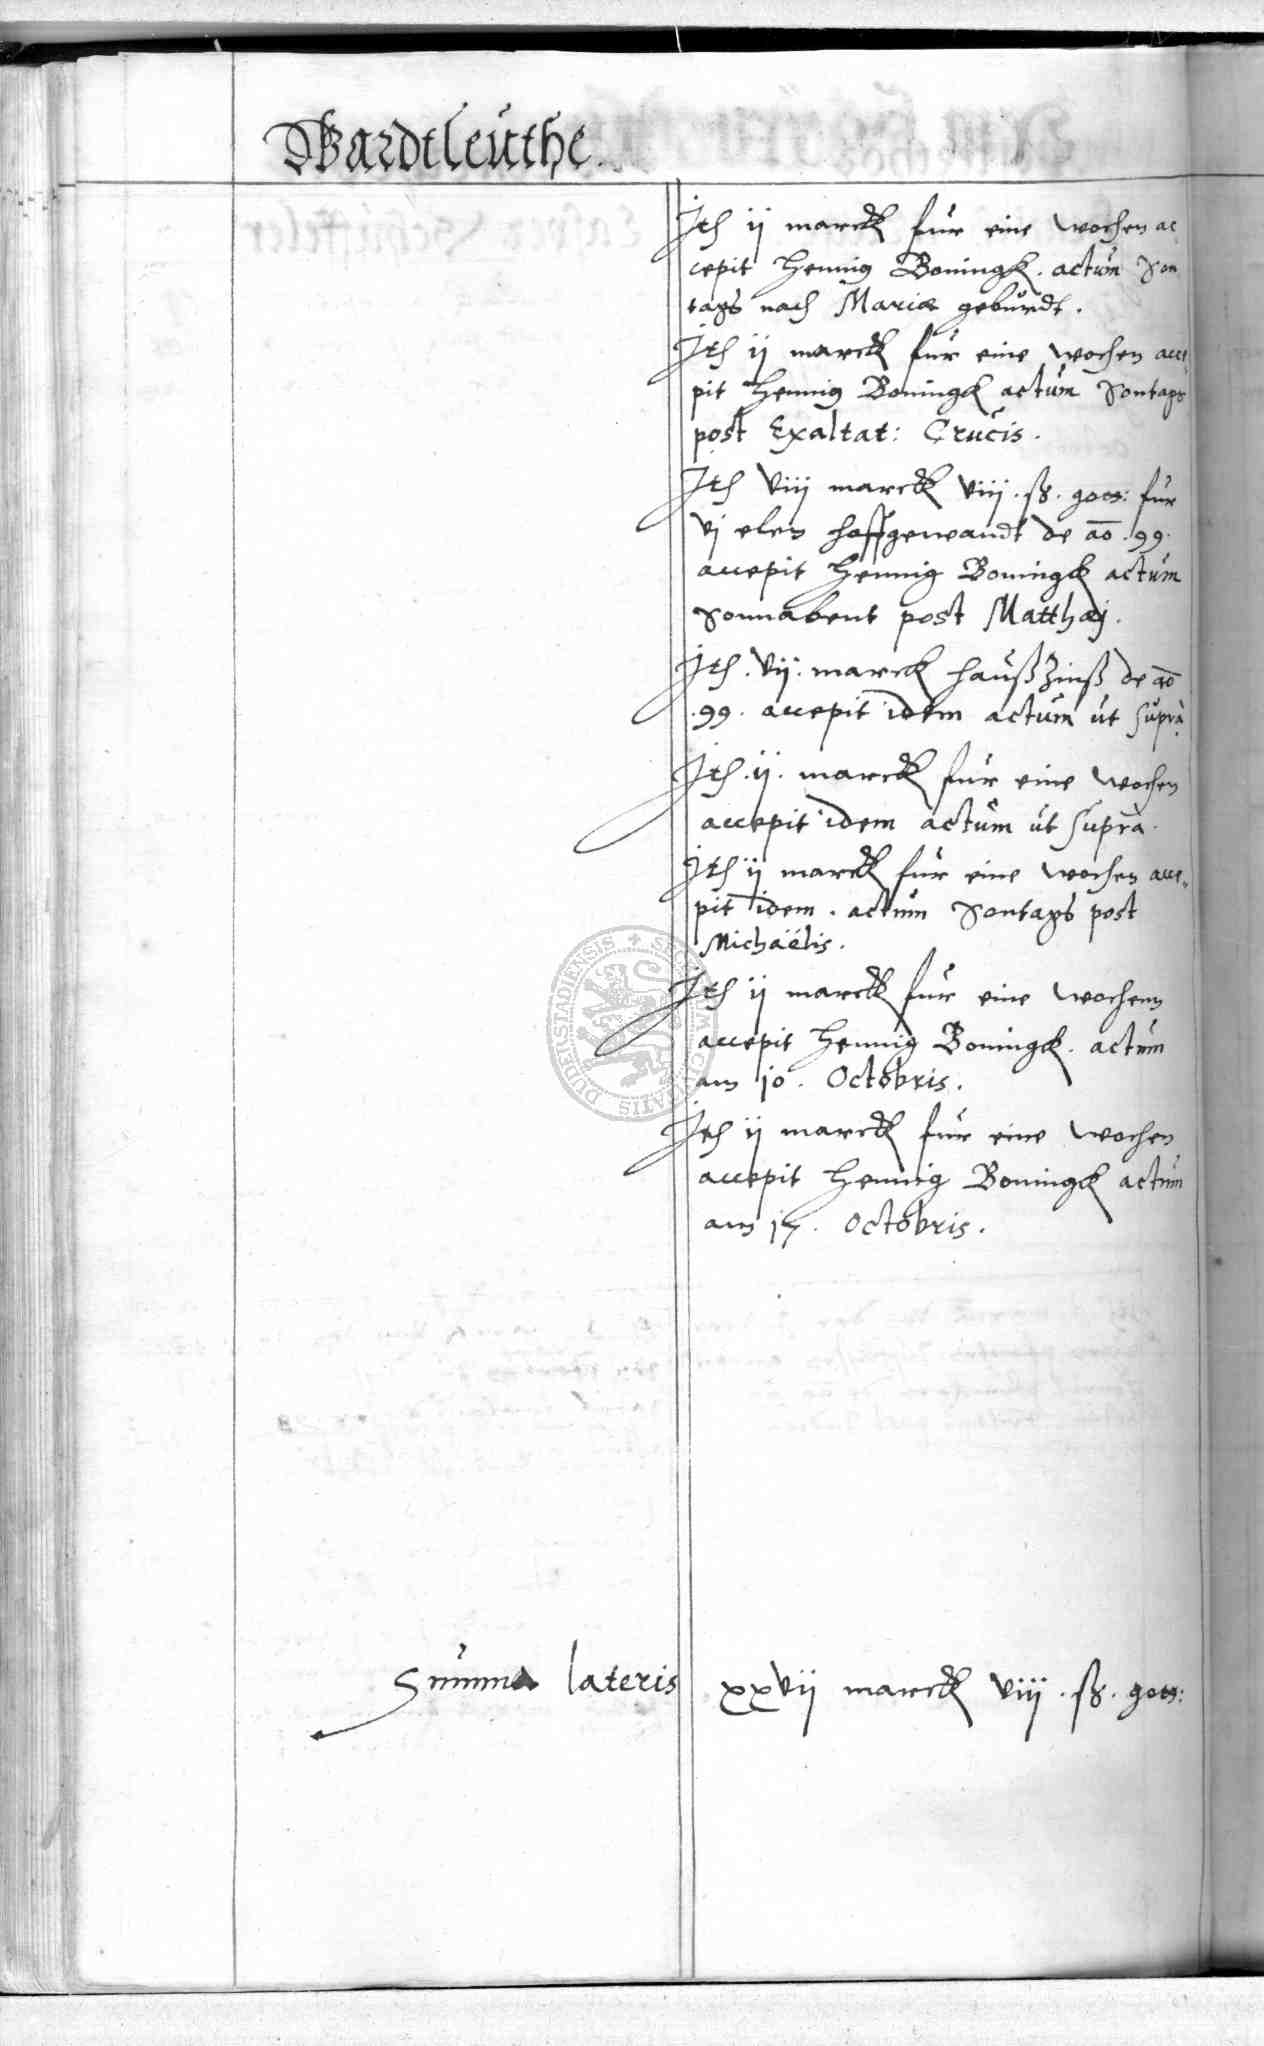 Wardtleuthe.
Ith ij marck für eine wochen ac
cepit Hennig Boningk. actum Son
tags nach Mariæ gebürdt.
Ith ij marck für eine wochen acce
pit Hennig Boningk actum Sontags
post Exaltat: Crucis.
Ith viij marck viij. ß. goes: für
vj elen hoffgewandt de ao. 99.
accepit Hennig Boningk actum
Sonnabent post Matthæj.
Ith. vij. marck haußzinß de ao
.99. accepit idem actum ut suprà
Ith. ij. marck für eine wochen
accepit idem actum ut suprà.
Ith ij marck für eine wochen acce-
pit idem. actum Sontags post
Michaëlis.
Ith ij marck für eine wochenn
accepit Hennig Boningk. actum
am 10. Octobris.
Ith ij marck für eine wochen
accepit Hennig Boningk actum
am 17. Octobris.
SECRETUM CIVITATIS DUDERSTADIENSIS
Summa lateris xxvij marck viij. ß. goes: